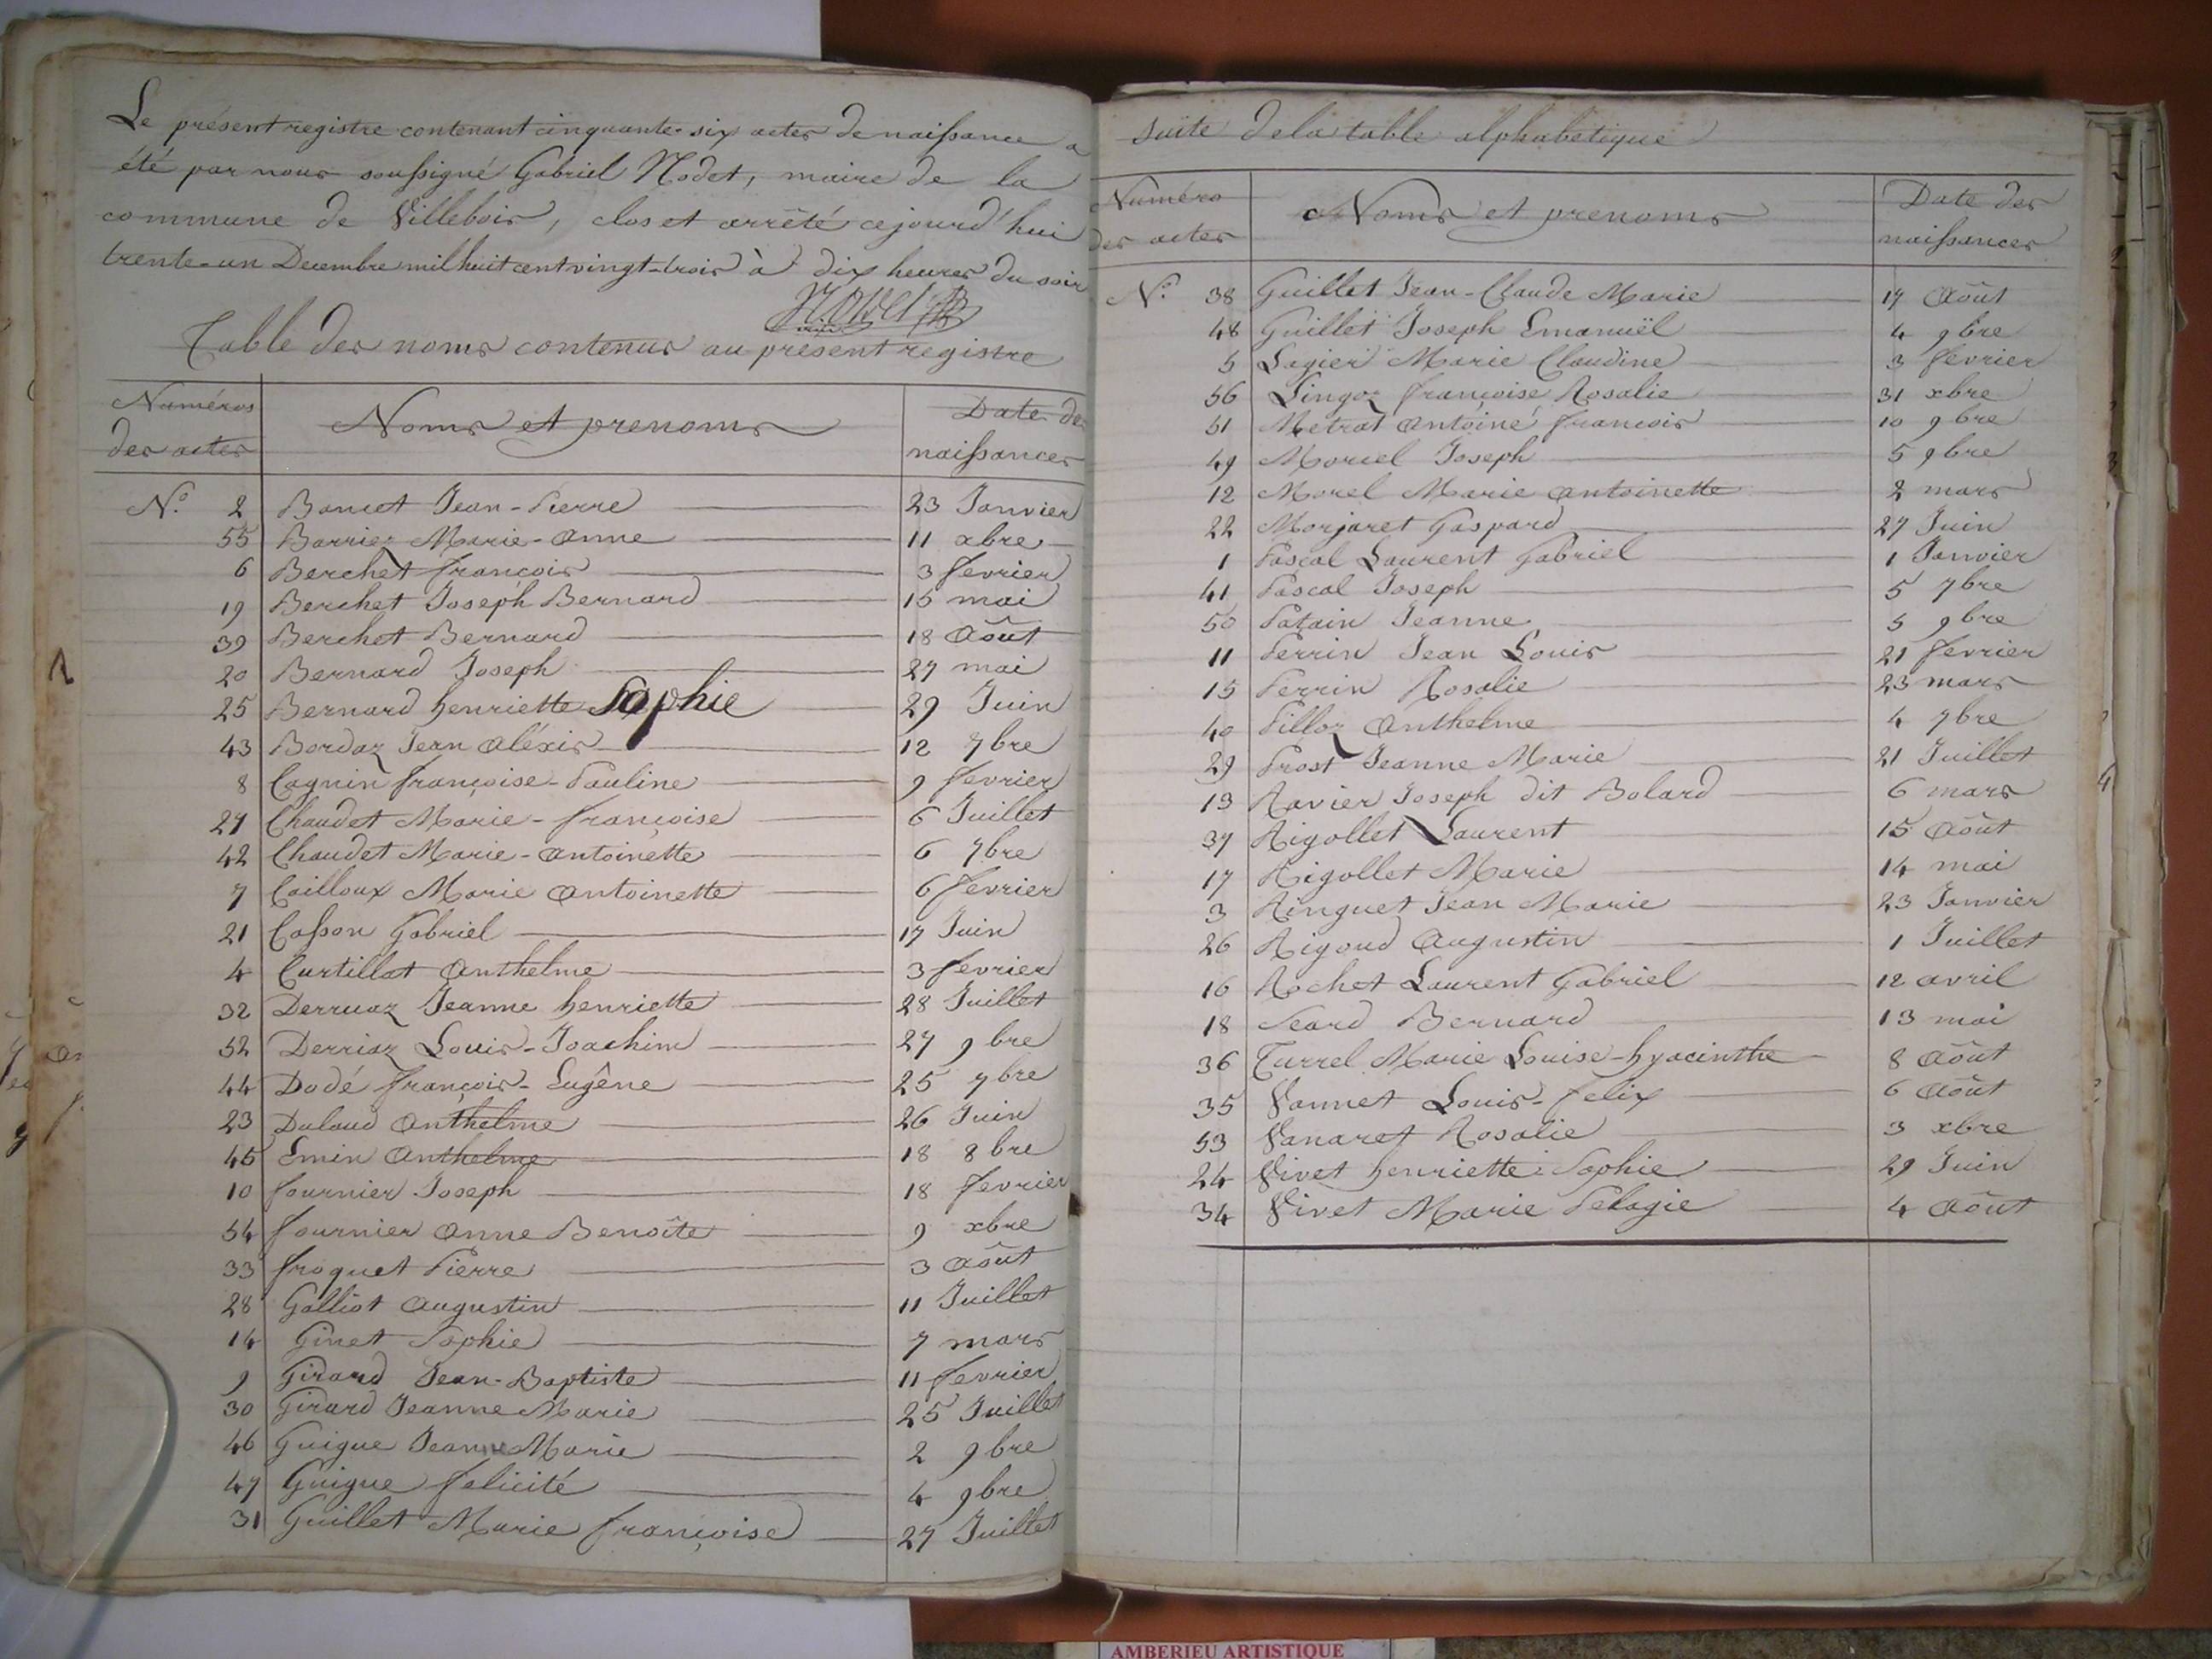 Le présent registre contenant cinquante-six actes de naissance a
été par nous soussigné Gabriel Nodet, maire de la
commune de Villebois, clos et arrêté cejourd'hui
trente-un Decembre mil huit cent vingt-trois à dix heures du soir
Table des noms contenus au présent registre
Numéros des actes Noms et prenoms Date des naissances
N.° 2 Bancet Jean-Pierre 23 Janvier
55 Barriez Marie-Anne 11 xbre
6 Berchet françois 3 fevrier
19 Berchet Joseph Bernard 15 mai
39 Berchet Bernard 18 Août
20 Bernard Joseph 27 mai
25 Bernard henriette Sophie 29 Juin
43 Bordaz Jean Aléxis 12 7bre
8 Cagnin françoise-Pauline 9 fevrier
27 Chaudet Marie-françoise 6 Juillet
42 Chaudet Marie-Antoinette 6 7bre
7 Cailloux Marie Antoinette 6 fevrier
21 Casson Gabriel 17 Juin
4 Curtillat Anthelme 3 fevrier
32 Derruaz Jeanne henriette 28 Juillet
52 Derriaz Louis-Joachim 27 9bre
44 Dodé françois-Eugêne 25 7bre
23 Dulaud Anthelme 26 Juin
45 Emin Anthelme 18 8bre
10 fournier Joseph 18 fevrier
54 fournier Anne Benoîte 9 xbre
33 froquet Pierre 3 Août
28 Galliot Augustin 11 Juillet
14 Ginet Sophie 7 mars
9 Girard Jean-Baptiste 11 fevrier
30 Girard Jeanne Marie 25 Juillet
46 Guigue Jeanne Marie 2 9bre
47 Guigue felicité 4 9bre
31 Guillet Marie françoise 27 Juillet
suite de la table alphabetique
Numéro des actes Noms et prenoms Date des naissances
N.° 38 Guillet Jean-Claude Marie 17 Août
48 Guillet Joseph Emanuël 4 9bre
5 Lagier Marie Claudine 3 fevrier
56 Lingoz françoise Rosalie 31 xbre
51 Metrat Antoine françois 10 9bre
49 Morel Joseph 5 9bre
12 Morel Marie Antoinette 2 mars
22 Morjaret Gaspard 27 Juin
1 Pascal Laurent Gabriel 1 Janvier
41 Pascal Joseph 5 7bre
50 Patain Jeanne 5 9bre
11 Perrin Jean Louis 21 fevrier
15 Perrin Rosalie 23 mars
40 Pilloz Anthelme 4 7bre
29 Prost Jeanne Marie 21 Juillet
13 Ravier Joseph dit Bolard 6 mars
37 Rigollet Laurent 15 Août
17 Rigollet Marie 14 mai
3 Ringuet Jean Marie 23 Janvier
26 Rigoud Augustin 1 Juillet
16 Rochet Laurent Gabriel 12 avril
18 Seard Bernard 13 mai
36 Turrel Marie Louise-hyacinthe 8 Août
35 Vannet Louis-felix 6 Août
53 Vanaret Rosalie 3 xbre
24 Vivet henriette Sophie 29 Juin
34 Vivet Marie Pelagie 4 Août
AMBERIEU ARTISTIQUE